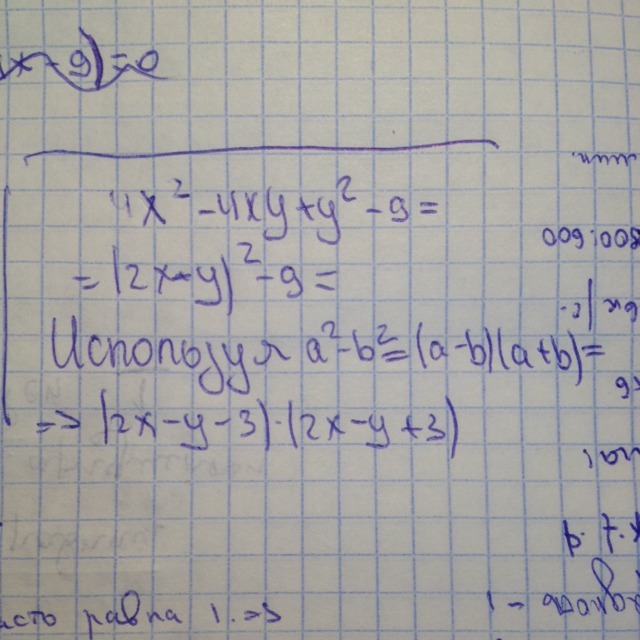 x - 9) = 0
4x² - 4xy + y² - 9 =
= (2x - y)² - 9 =
Используя a² - b² = (a - b)(a + b) =
=> (2x - y - 3) · (2x - y + 3)
равна 1. =>